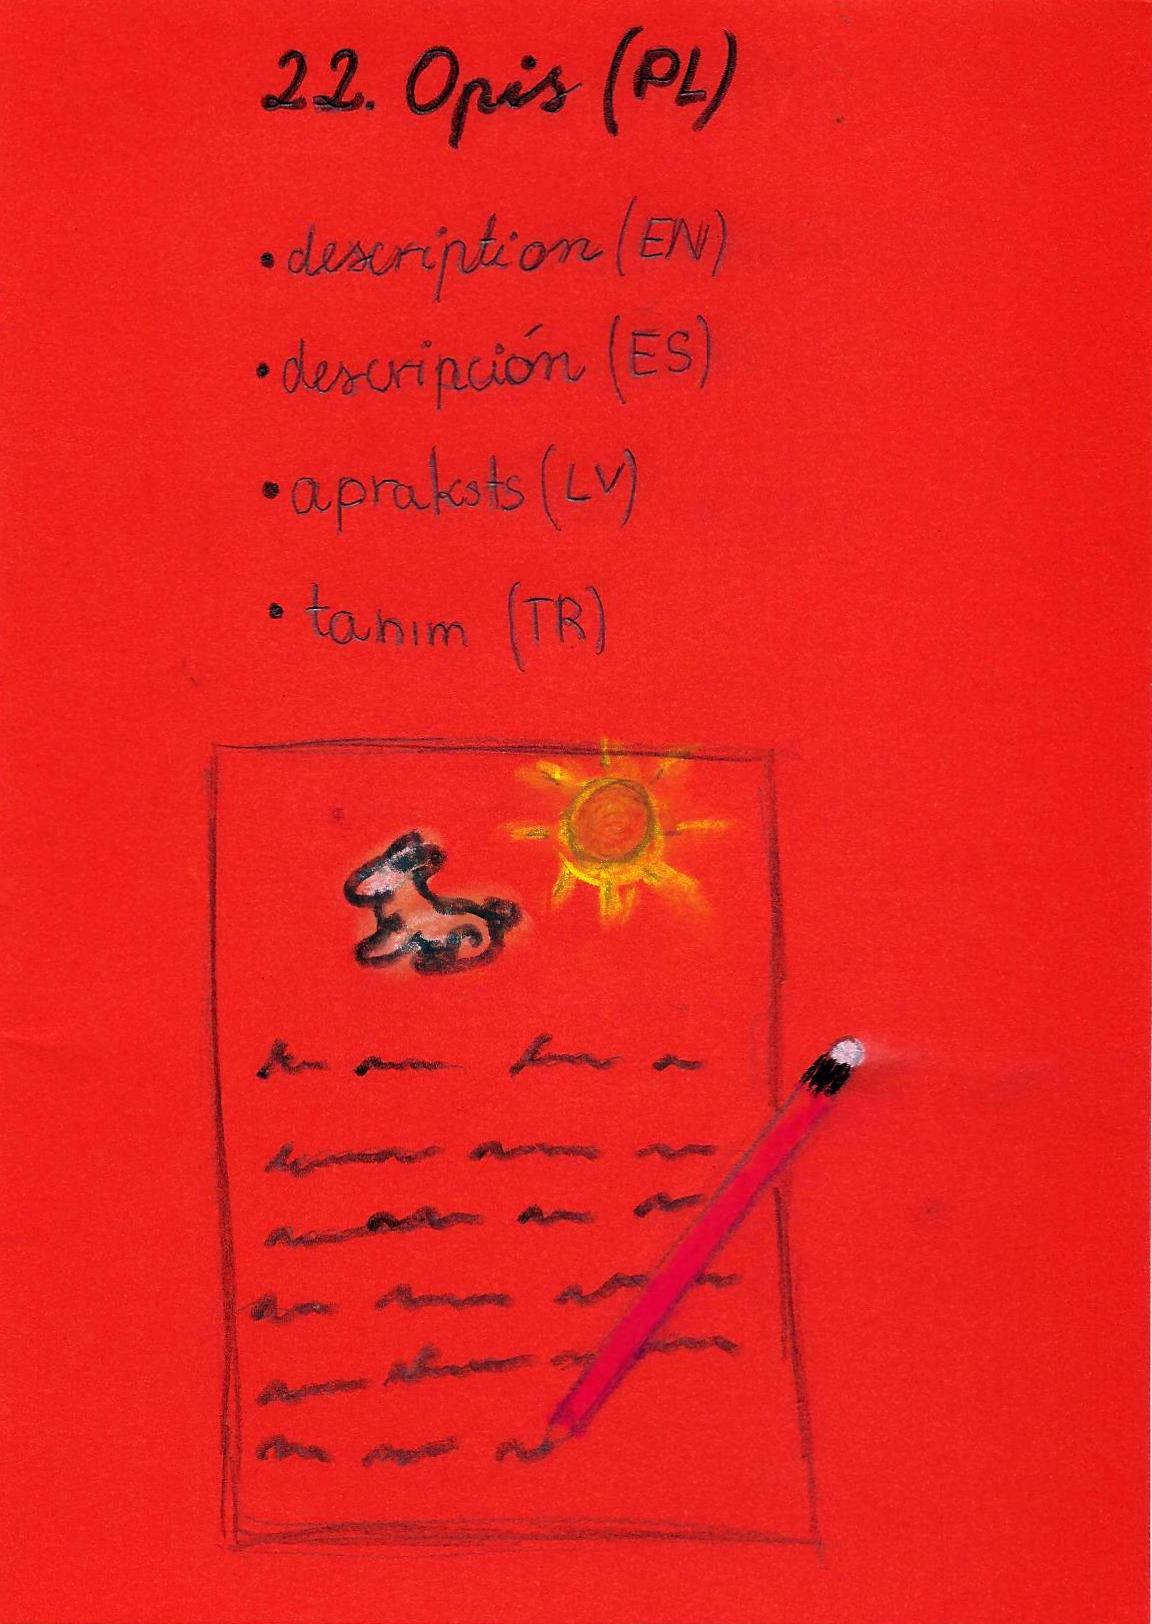 22. Opis (PL)
•description (EN)
•descripción (ES)
•apraksts (LV)
•tanım (TR)